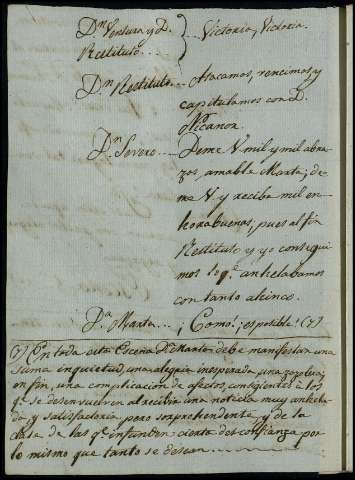 Dn. Ventura y D.
Restituto ... } Victoria, Victoria.
Dn. Restituto ... Atacamos, vencimos, y
capitulamos con D.
Nicanor.
Dn. Severo ... Deme V. mil y mil abra-
zos amable Marta; de-
me V. y reciba mil en-
horabuenas; pues al fin
Restituto y yo consegui-
mos lo qe. anhelabamos
con tanto ahinco.
Da. Marta ... ¡Como!; es posible! (7)
(7) En toda esta Escena Da. Marta debe manifestar una
suma inquietud, una alegria inesperada, una zozobra;
en fin, una complicacion de afectos, consiguientes à los
qe. se desenvuelven al recibir una noticia muy anhela-
da y satisfactoria pero sorprehendente, y de la
clase de las qe. infunden cierta desconfianza por
lo mismo que tanto se desean